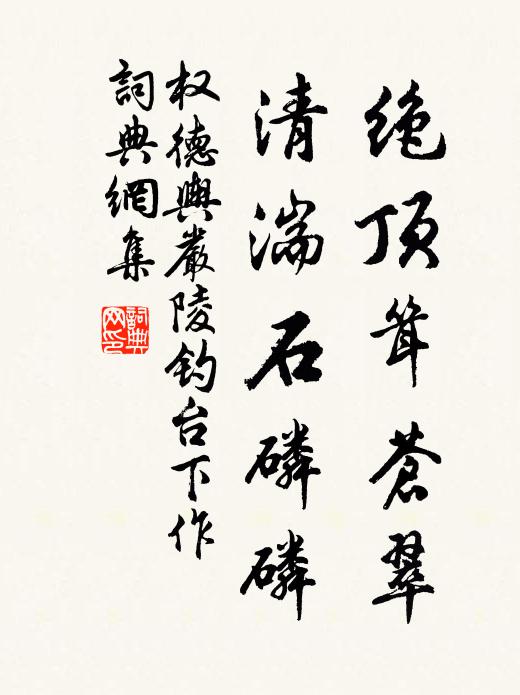 绝顶耸苍翠
清湍石磷磷
权德舆嚴陵钓台下作
詞典網集
詞典网印